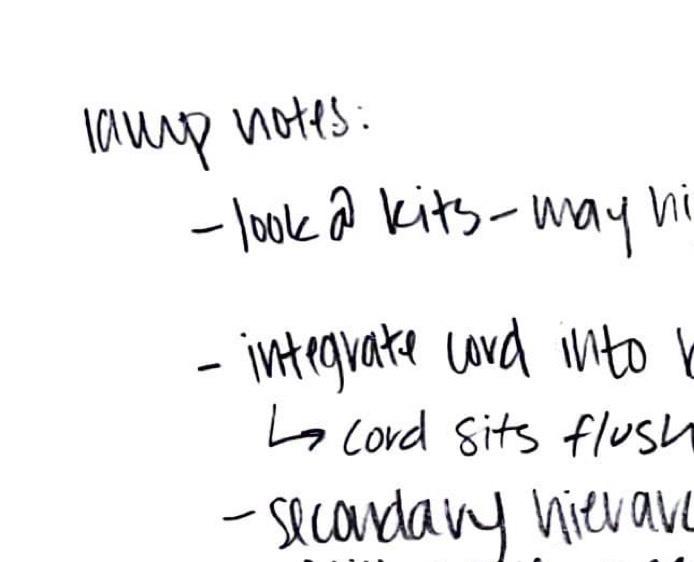 lamp notes:
- look @ kits - may hi
- integrate cord into
↳ cord sits flush
- secondary hierarc